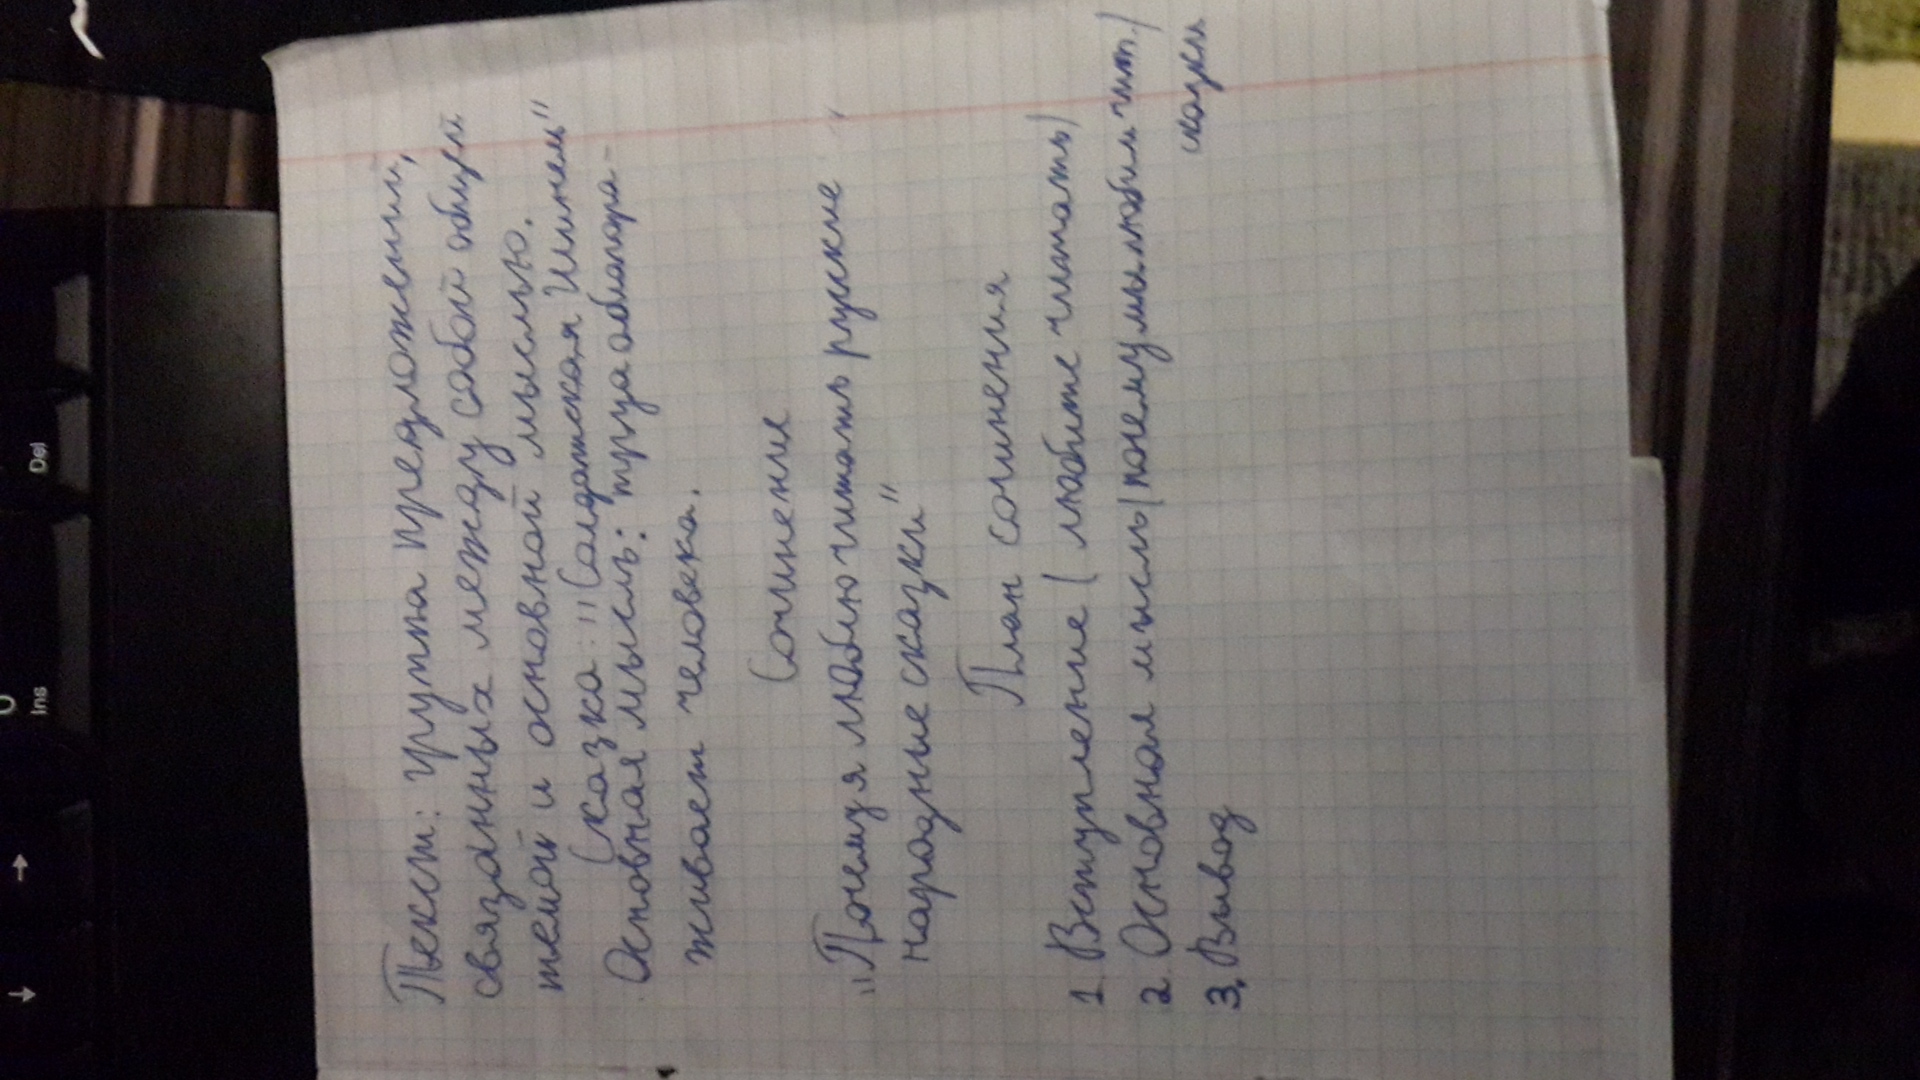 Текст: группа предложений,
связанных между собой общей
темой и основной мыслью.
Сказка: "Солдатская Шинель"
Основная мысль: труд облагора-
живает человека.
Сочинение
"Почему я люблю читать руские
народные сказки"
План сочинения
1. Вступление (любите читать)
2. Основная мысль (почему мы любим чит.)
сказки
3. Вывод
Del
Ins